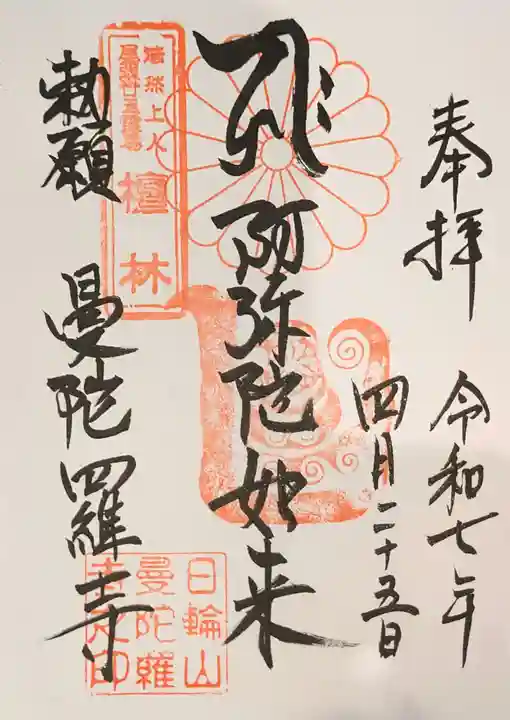 奉拝 令和七年
四月二十五日
阿弥陀如来
勅願 曼陀羅寺
法然上人
檀林
日輪山
曼陀羅
寺之印